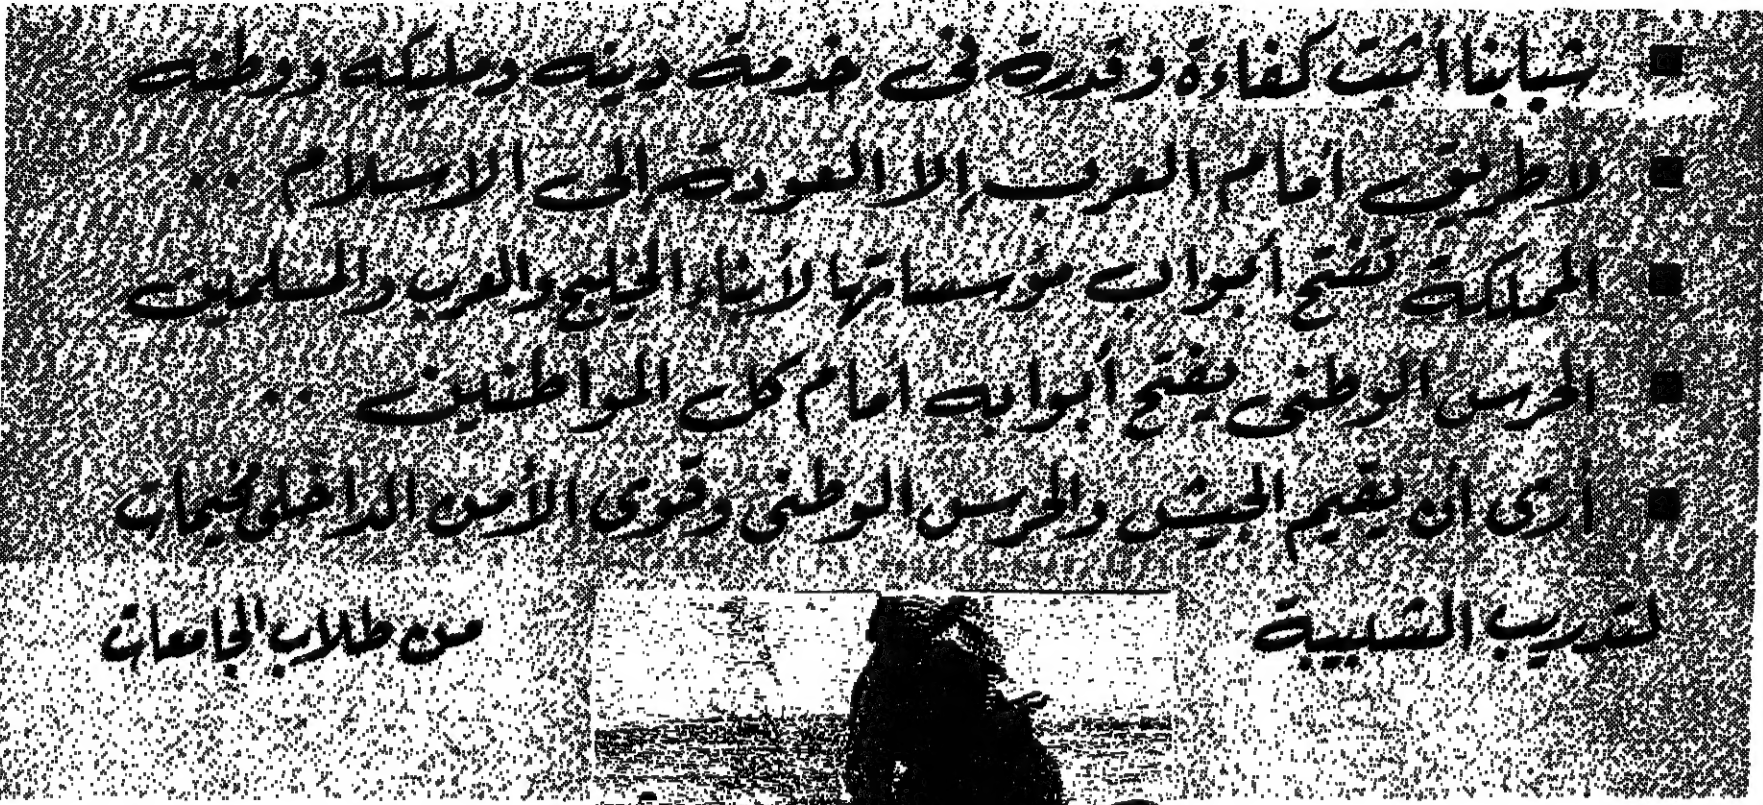 ■ شبابنا أثبت كفاءة وقدرة في خدمة دينه ومليكه ووطنه
■ لا طريق أمام العرب إلا العودة إلى الاسلام ..
■ المملكة تفتح أبواب مؤسساتها لأبناء الخليج والعرب والمسلمين
■ الحرس الوطني يفتح أبوابه أمام كل المواطنين ..
■ أرى أن يقيم الجيش والحرس الوطني وقوى الأمن الداخلي مخيمات
لتدريب الشبيبة من طلاب الجامعات